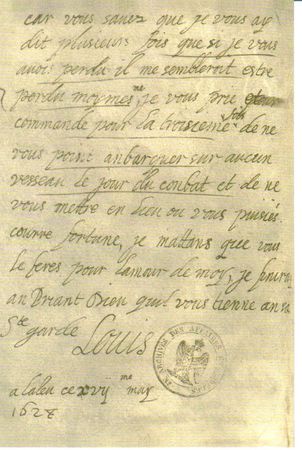 car vous savez que je vous ay
dit plusieurs fois que si je vous
avois perdu il me sembleroit estre
perdu moymesme, je vous prie et vous
commande pour la troiscieme fois de ne
vous point anbarquer sur aucun
vesseau le jour du conbat et de ne
vous mettre en lieu ou vous puisiés
courre fortune, je mattans que vous
le feres pour lamour de moy, je finiray
an Priant Dieu quil vous tienne an sa
Ste garde
Louis
ARCHIVES DES AFFAIRES
a
ce xvij me may
1628